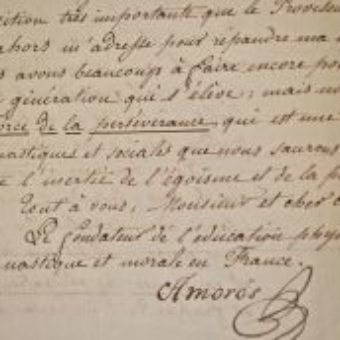 ition très importante que le Proviseu
ahors m'adresse pour répandre ma
s avons beaucoup à faire encore pou
génération qui s'élève: mais no
orce de la perseverance, qui est une
nastiques et sociales que nous saurons
e l'inertie de l'égoïsme et de la p
Tout à vous, Monsieur et cher c
Le fondateur de l'education phys
nastique et morale en France.
Amorós